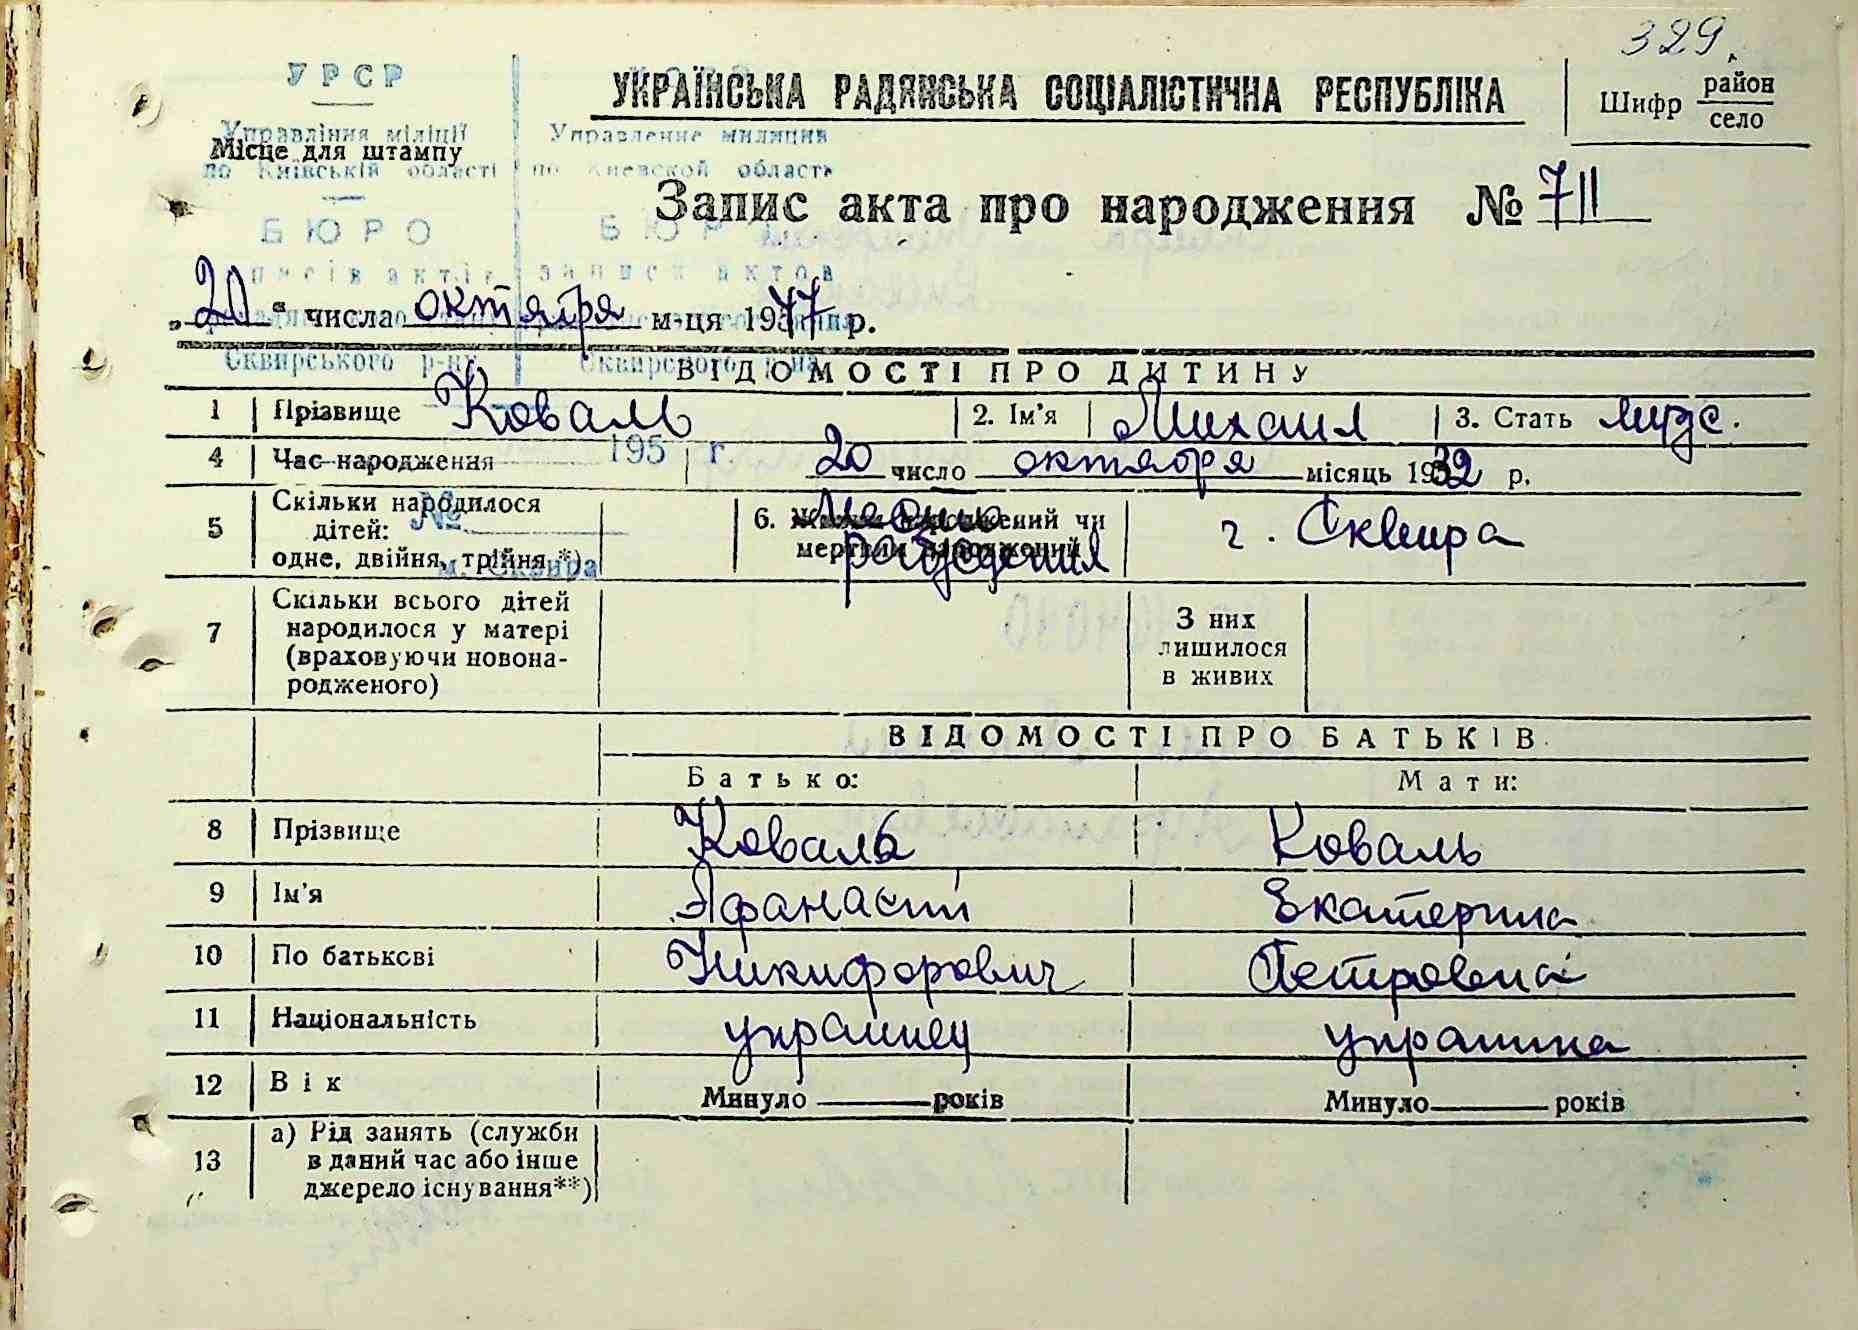 329.
УКРАЇНСЬКА РАДЯНСЬКА СОЦІАЛІСТИЧНА РЕСПУБЛІКА
Шифр район
село
УРСР
Управління міліції
по Київській області
Управление милиции
по Киевской области
Місце для штампу
БЮРО
БЮР
Запис акта про народження № 711
записів актів
записи актов
„20“ числа октября м-ця 1977 р.
Сквирського р-ну
Сквирского р-на
ВІДОМОСТІ ПРО ДИТИНУ
1 Прізвище Коваль 2. Ім'я Михаил 3. Стать муж.
195 г.
4 Час народження 20 число октября місяць 1932 р.
5 Скільки народилося дітей: одне, двійня, трійня *)
№
м. Сквира
6. Живим народжений чи мертвим народжений
Место рождения
г. Сквира
7 Скільки всього дітей народилося у матері (враховуючи новонародженого)
З них лишилося в живих
ВІДОМОСТІ ПРО БАТЬКІВ
Батько: Мати:
8 Прізвище Коваль Коваль
9 Ім'я Афанасий Екатерина
10 По батькові Никифорович Петровна
11 Національність украинец украинка
12 Вік Минуло років Минуло років
13 а) Рід занять (служби в даний час або інше джерело існування**)